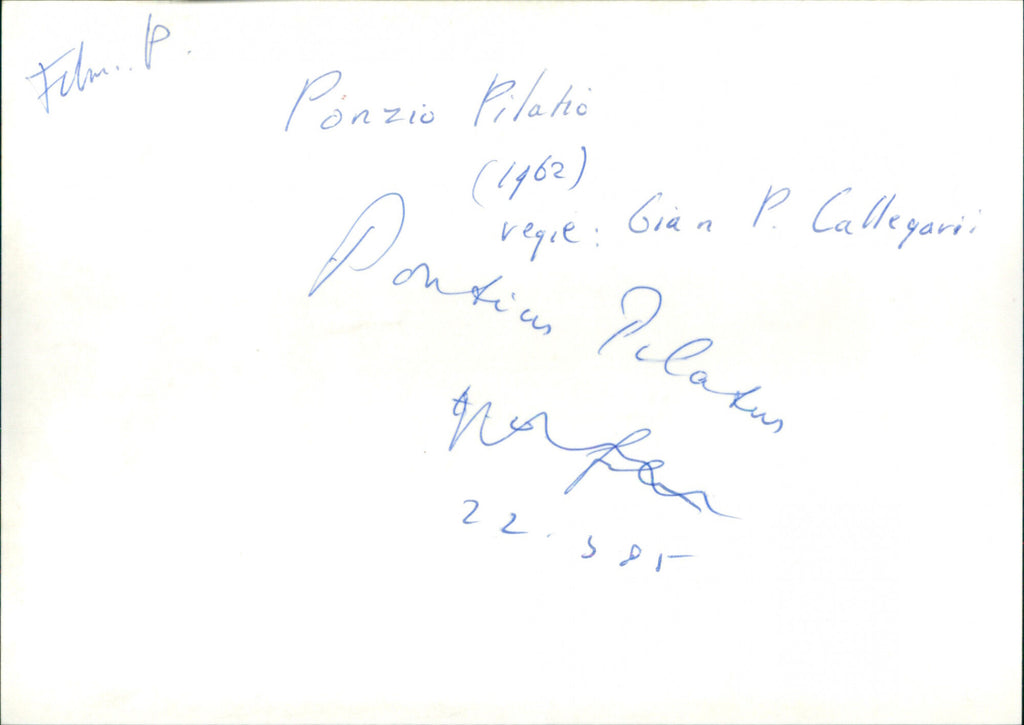 Film. P.
Ponzio Pilatio
(1962)
regie: Gian P. Callegari
Pontius Pilatus
22. 3 85